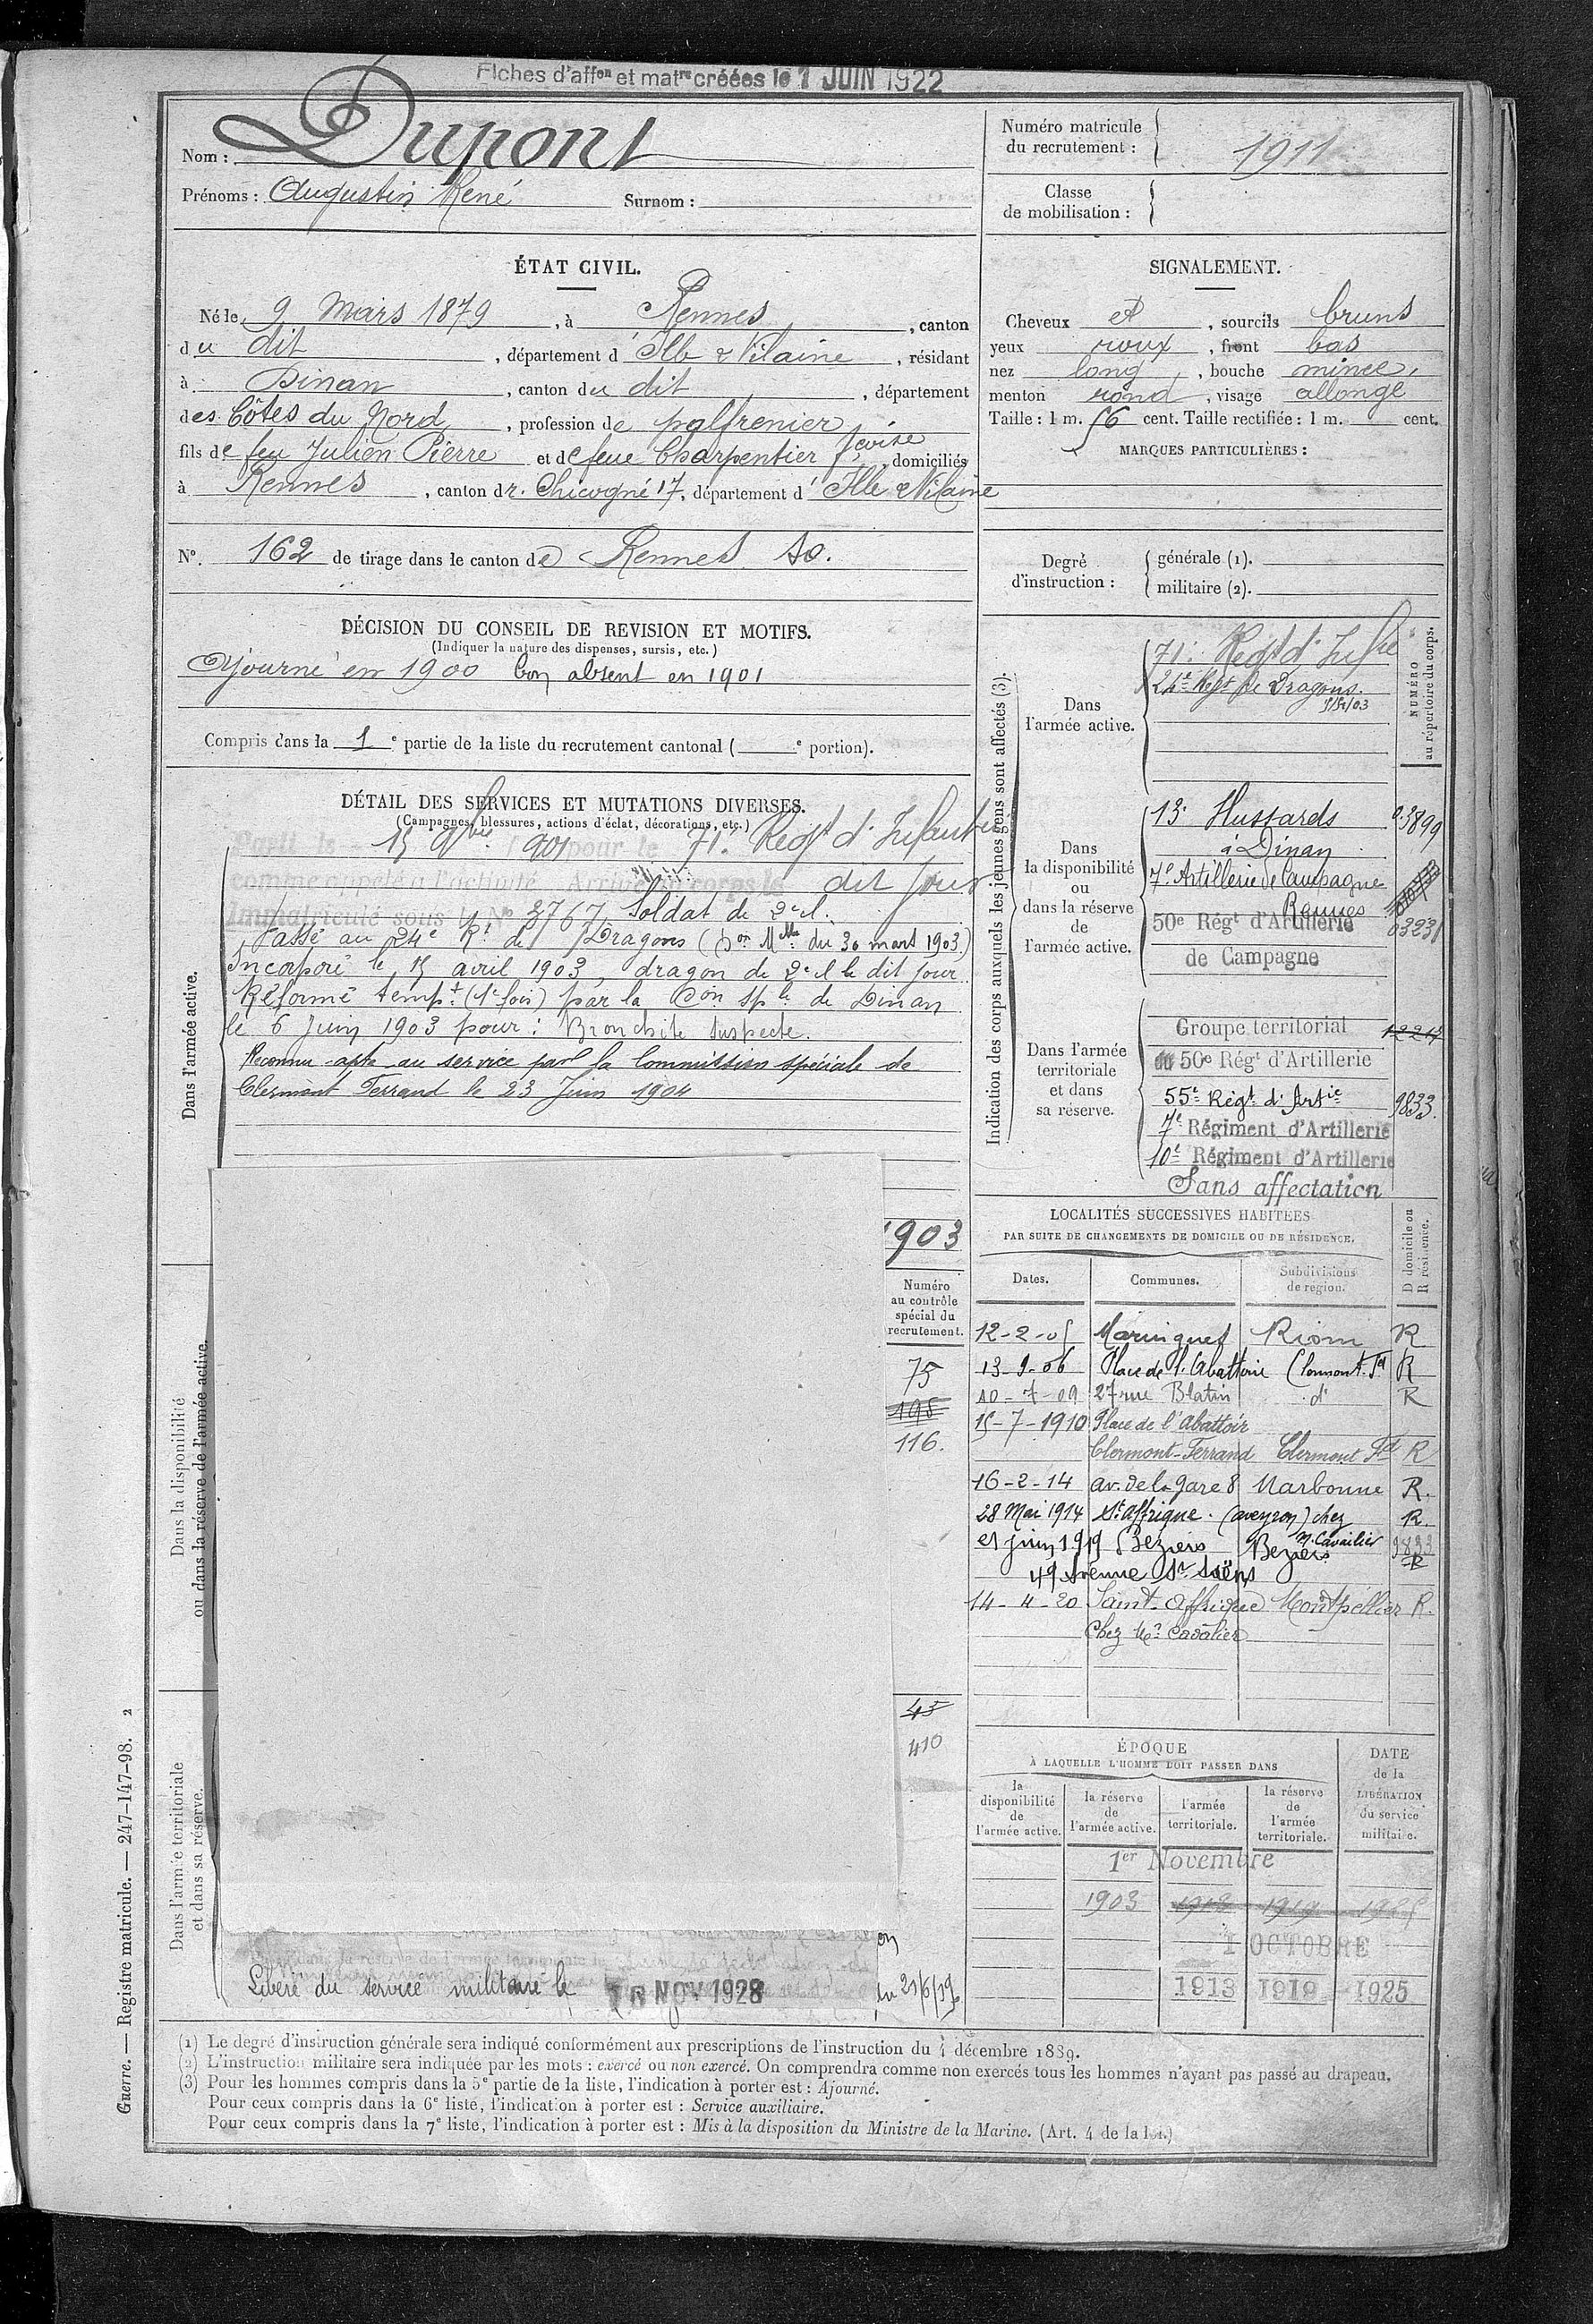 Fiches d'affon et matre créées le 1 JUIN 1922
Nom : Dupont
Prénoms : Augustin René Surnom :
Numéro matricule du recrutement : 1911
Classe de mobilisation :
ÉTAT CIVIL.
Né le 9 Mars 1879, à Rennes, canton
du dit, département d'Ille & Vilaine, résidant
à Dinan, canton du dit, département
des Côtes du Nord, profession de palfrenier
fils de feu Julien Pierre et de feue Charpentier, domiciliés
à Rennes, canton d r. Chicogné 17, département d'Ille & Vilaine
N° 162 de tirage dans le canton de Rennes S.O.
SIGNALEMENT.
Cheveux et, sourcils bruns
yeux roux, front bas
nez long, bouche mince,
menton rond, visage allongé
Taille : 1 m. 56 cent. Taille rectifiée : 1 m. cent.
MARQUES PARTICULIÈRES :
Degré d'instruction :
générale (1).
militaire (2).
DÉCISION DU CONSEIL DE REVISION ET MOTIFS.
(Indiquer la nature des dispenses, sursis, etc.)
Ajourné en 1900 bon absent en 1901
Compris dans la 1e partie de la liste du recrutement cantonal ( e portion).
DÉTAIL DES SERVICES ET MUTATIONS DIVERSES.
(Campagnes, blessures, actions d'éclat, décorations, etc.)
Dans l'armée active.
Parti le 15 9bre 1901 pour le 71e Regt d'Infanterie
comme appelé à l'activité. Arrivé au corps le dit jour
Immatriculé sous le N° 3767 Soldat de 2e cl.
Passé au 24e Rt de Dragons (Don Mlle du 30 mars 1903)
Incorporé le 15 avril 1903, dragon de 2e cl le dit jour
Réformé tempt (1e fois) par la Con sple de Dinan
le 6 Juin 1903 pour : Bronchite suspecte.
Reconnu apte au service par la Commission spéciale de
Clermont Ferrand le 23 Juin 1904
1903
Numéro au contrôle spécial du recrutement.
75
198
116.
Dans la disponibilité ou dans la réserve de l'armée active.
45
410
Dans l'armée territoriale et dans sa réserve.
on
Libéré du service militaire le 10 NOV 1928
Indication des corps auxquels les jeunes gens sont affectés (3).
NUMÉRO au répertoire du corps.
Dans l'armée active.
71e Regt d'Infie
24e Regt de Dragons.
Dans la disponibilité ou dans la réserve de l'armée active.
13e Hussards 03899
à Dinan
7e Artillerie de Campagne
Rennes
50e Régt d'Artillerie 03231
de Campagne
Dans l'armée territoriale et dans sa réserve.
Groupe territorial
du 50e Régt d'Artillerie
55e Régt d'Artie 9833
7e Régiment d'Artillerie
10e Régiment d'Artillerie
Sans affectation
LOCALITÉS SUCCESSIVES HABITÉES
PAR SUITE DE CHANGEMENTS DE DOMICILE OU DE RÉSIDENCE.
Dates. Communes. Subdivisions de région. D domicile ou R résidence.
12-2-05 Maringues Riom R
13-9-06 Place de l'Abattoir Clermont-Fd R
10-7-09 27 rue Blatin d° R
15-7-1910 Place de l'abattoir
Clermont-Ferrand Clermont Fd R
16-2-14 av. de la gare 8 Narbonne R.
28 Mai 1914 St Affrique. (aveyron) chez R.
M. Cavailier
21 juin 1919 Béziers Beziers 9833 R
49 Avenue St Saëns
14-4-20 Saint-Affrique Montpellier R.
Chez Mr Cavalier
ÉPOQUE
À LAQUELLE L'HOMME DOIT PASSER DANS
la disponibilité de l'armée active.
la réserve de l'armée active.
l'armée territoriale.
la réserve de l'armée territoriale.
DATE de la LIBÉRATION du service militaire.
1er Novembre
1903
1 OCTOBRE
1913 1919 1925
(1) Le degré d'instruction générale sera indiqué conformément aux prescriptions de l'instruction du 4 décembre 1889.
(2) L'instruction militaire sera indiquée par les mots : exercé ou non exercé. On comprendra comme non exercés tous les hommes n'ayant pas passé au drapeau.
(3) Pour les hommes compris dans la 5e partie de la liste, l'indication à porter est : Ajourné.
Pour ceux compris dans la 6e liste, l'indication à porter est : Service auxiliaire.
Pour ceux compris dans la 7e liste, l'indication à porter est : Mis à la disposition du Ministre de la Marine. (Art. 4 de la loi.)
Guerre. — Registre matricule. — 247-147-98. 2